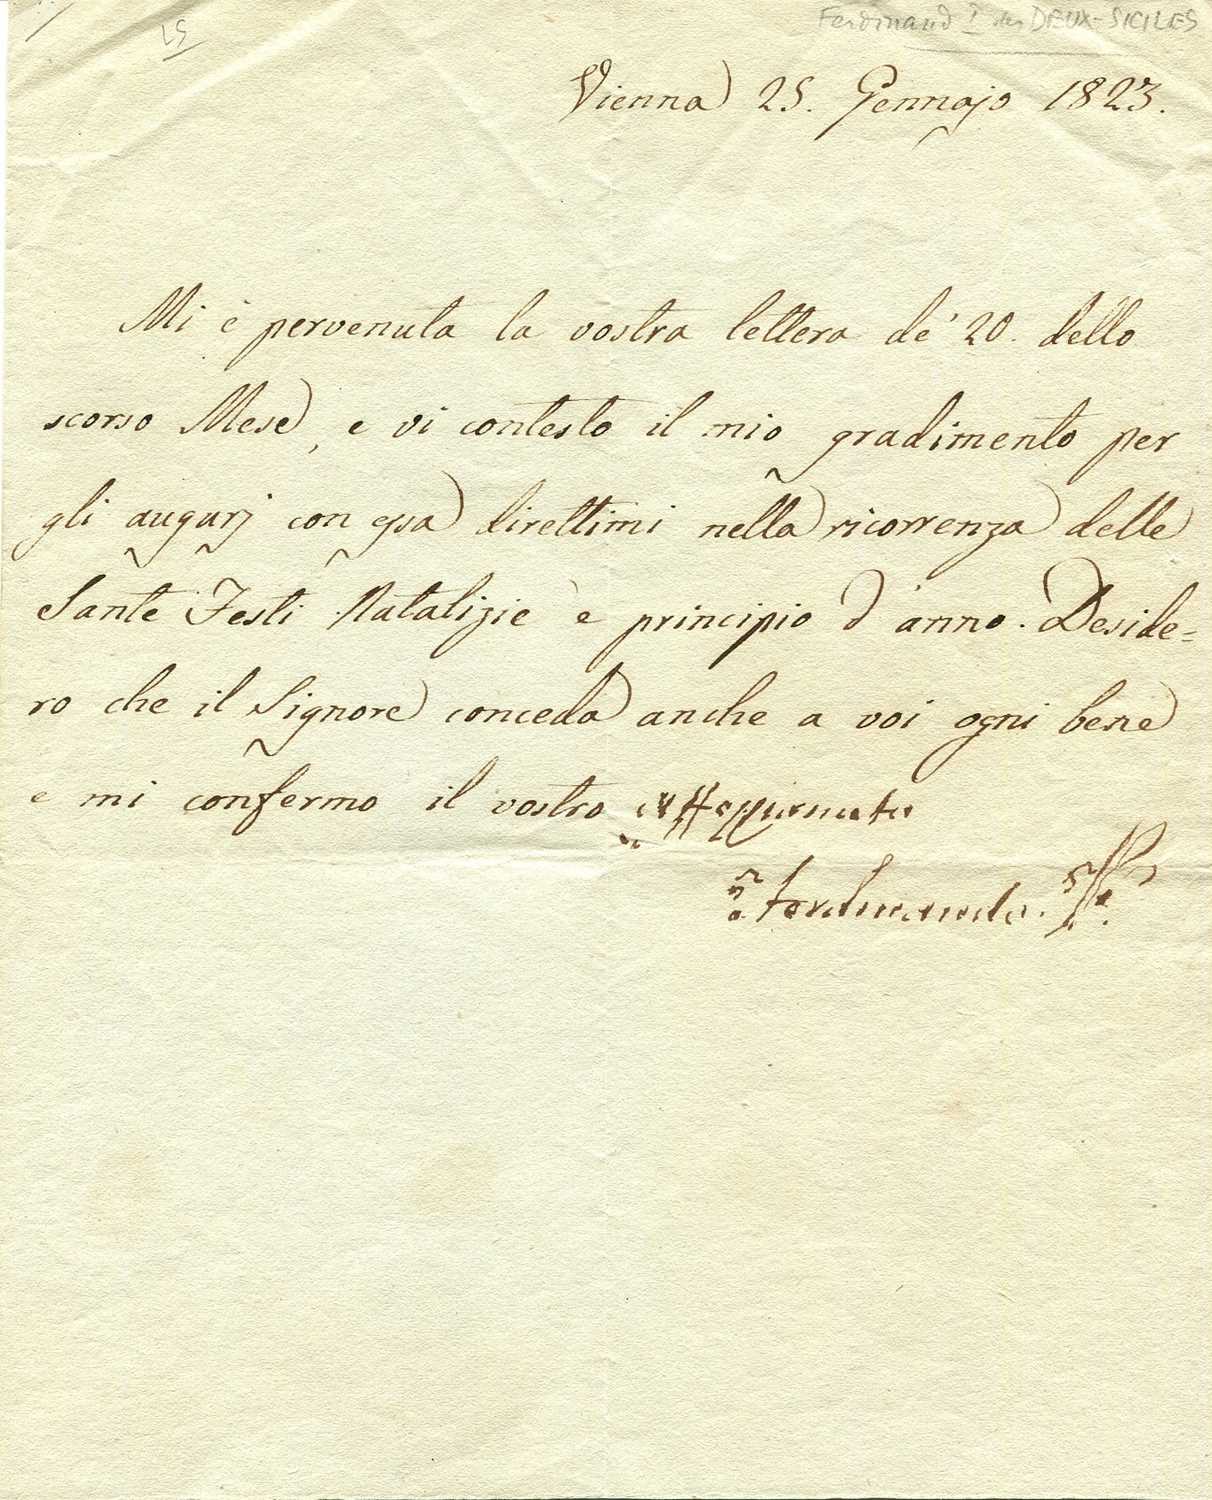 LS
Ferdinand I des DEUX-SICILES
Vienna 25. Gennajo 1823.
Mi è pervenuta la vostra lettera de' 20. dello
scorso Mese, e vi contesto il mio gradimento per
gli augurj con essa direttimi nella ricorrenza delle
Sante Festi Natalizie e principio d'anno. Deside=
ro che il Signore conceda anche a voi ogni bene
e mi confermo il vostro affezzionato
Ferdinando.